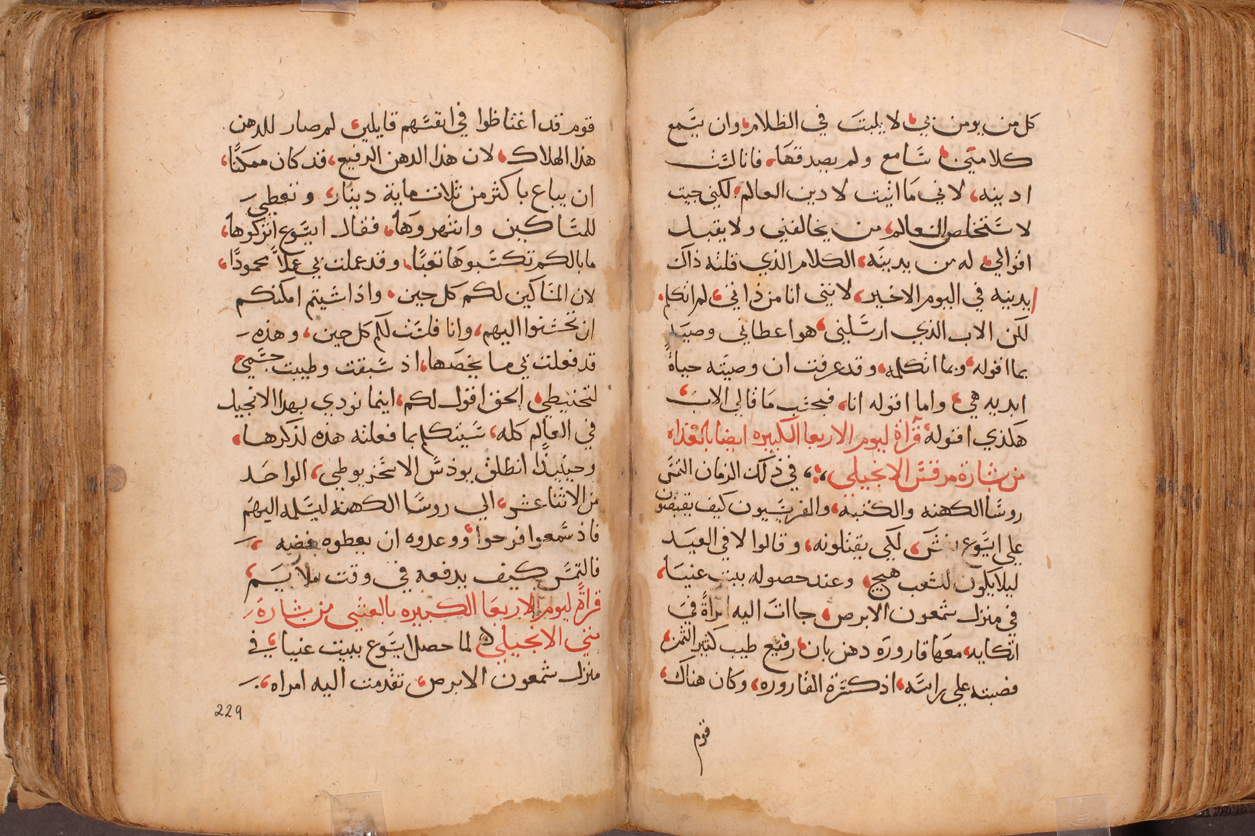 كل من يومن بي لا يلبت في الظلام وان يتمع
كلامتي سامع ولم يصدقها فانا لست
ادينه لاني ما اتيت لادين العالم لكني جيت
لاستخلص العالم من يخالفني ولا يقبل
اقوالي له من يدينه الكلام الذي قلته ذاك
يدينه في اليوم الاخير لانني انا من ذاتي لم اتكلم
لكن الاب الذي ارسلني هو اعطاني وصيه
بما اقوله وبما اتكلمه وقد عرفت ان وصيته حياة
ابديه هي واما اقوله انا فبحسب ما قال لي الاب
هكذي اقوله قرأة ليوم الاربعا الكبيره ايضا بالغداه
من شارة مرقس الانجيلي في ذلك الزمان التمس
روسا الكهنه والكتبه والفريسيون كيف يقبضون
علي ايسوع لكي يقتلونه وقالوا لا في العيد
ليلا يكون لشعب هيج وعند حصوله ببيت عنيا
في منزل شمعون الابرص جاات اليه امراة في
اتكايه معها قاروره دهن بان رفيع طيب كثير الثمن
فصبته علي راسه اذ كسرة القاروره وكان هناك
قوم
قوم قد اغتاظوا في انفسهم قايلين لم صار للدهن
هذا الهلاك لان هذا الدهن الرفيع قد كان ممكنا
ان يباع باكثر من ثلات ماية دينار وتعطي
للمساكين وانتهروها فقال ايسوع اتركوها
ما بالكم تكسبوها تعبا وقد عملت بي عملا محمودا
لان المساكين لكم كل حين واذا شيتم امكنكم
ان تحسنوا اليهم وانا فلست لكم كل حين وهذه
قد فعلت بي ما يخصها اذ سبقت وطيبت جسمي
لتحنيطي الحق اقول لكم اينما نودي بهذا الانجيل
في العالم كله سيتكلم بما فعلته هذه لذكرها
وحينيذ انطلق يوذس الاسخريوطي الواحد
من الاتناعش الي روسا الكهنه ليسلمه اليهم
فاذ سمعوا فرحوا ووعدوه ان يعطوه فضه
فالتمس كيف يدفعه في وقت ملايم
قرأة ليوم الاربعا الكبيره بالعشي من شارة
متي الانجيلي لما حصل ايسوع ببيت عنيا في
منزل شمعون الابرص تقدمت اليه امراه
229